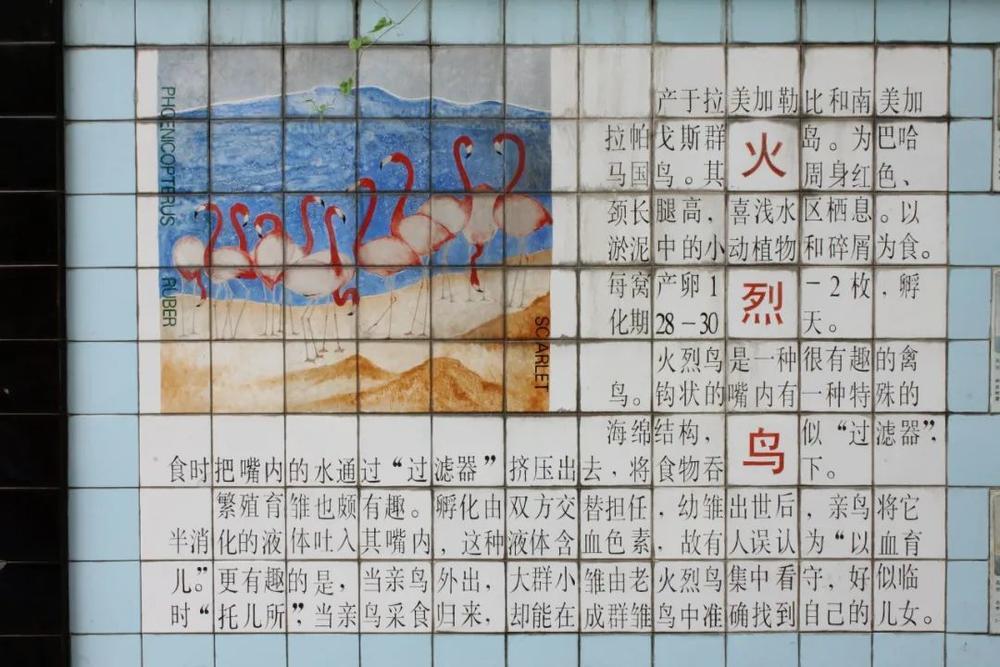 PHOENICOPTERUS RUBER
SCARLET
火烈鸟
产于拉美加勒比和南美加
拉帕戈斯群岛。为巴哈
马国鸟。其周身红色、
颈长腿高，喜浅水区栖息。以
淤泥中的小动植物和碎屑为食。
每窝产卵1－2枚，孵
化期28－30天。
火烈鸟是一种很有趣的禽
鸟。钩状的嘴内有一种特殊的
海绵结构，似“过滤器”，
食时把嘴内的水通过“过滤器”挤压出去，将食物吞下。
繁殖育雏也颇有趣。孵化由双方交替担任，幼雏出世后，亲鸟将它
半消化的液体吐入其嘴内，这种液体含血色素，故有人误认为“以血育
儿”。更有趣的是，当亲鸟外出，大群小雏由老火烈鸟集中看守，好似临
时“托儿所”，当亲鸟采食归来，却能在成群雏鸟中准确找到自己的儿女。